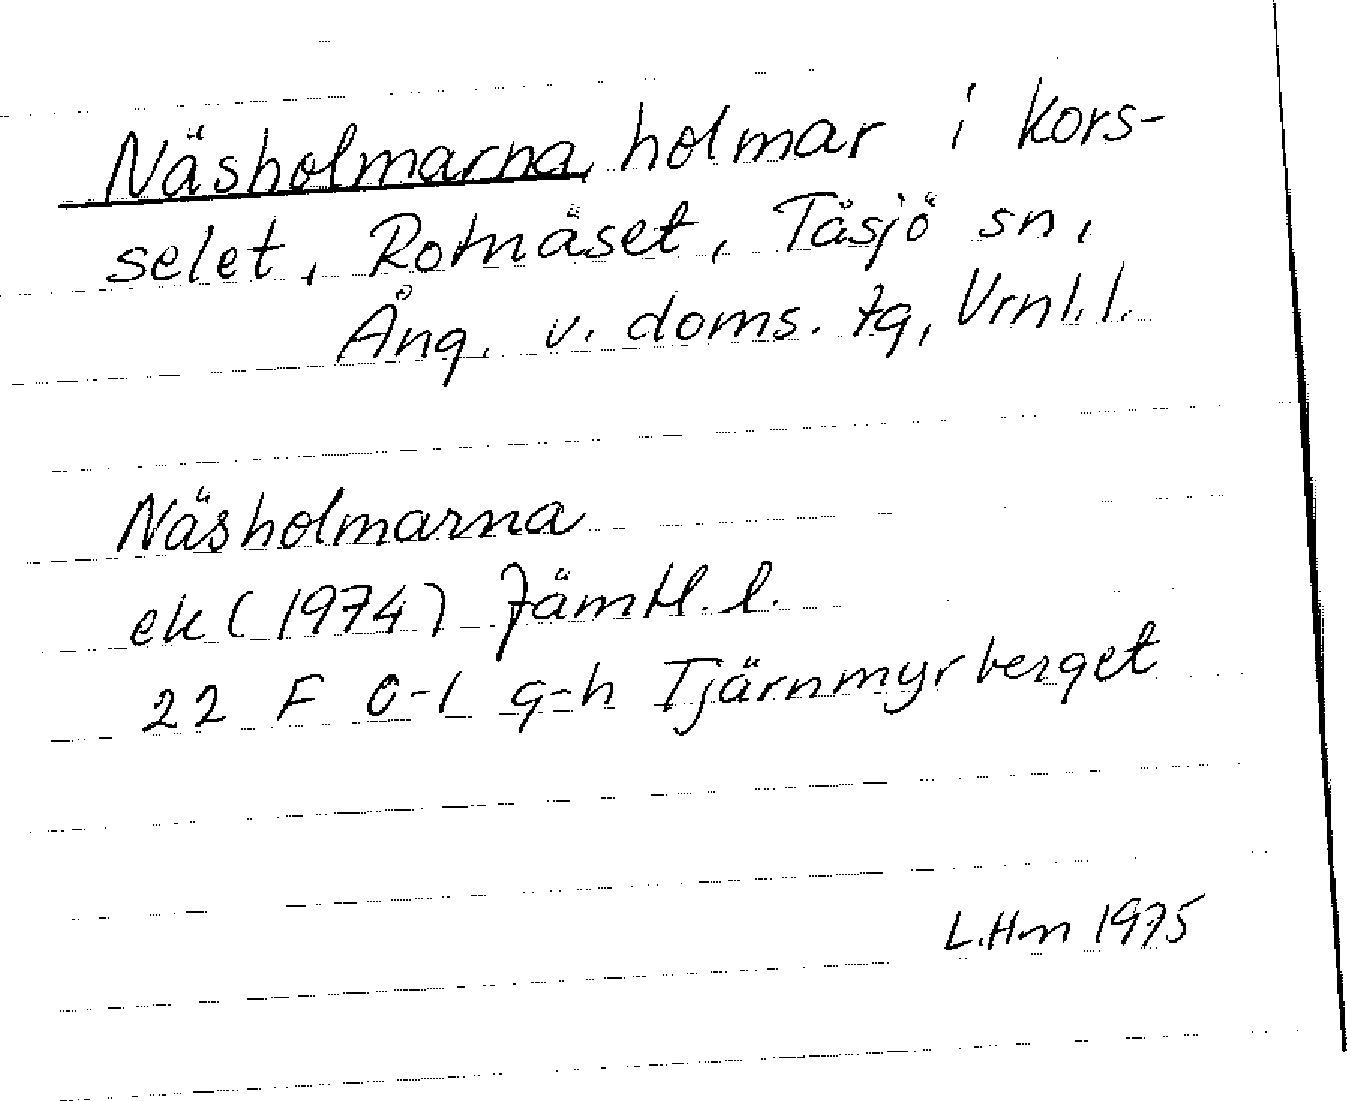 Näsholmarna, holmar i Kors-
selet, Rotnäset, Tåsjö sn,
Ång. v. doms. tg, Vrnl.l.
Näsholmarna
ek (1974) Jämtl. l.
22 F 0-1 g-h Tjärnmyrberget
L.Hm 1975